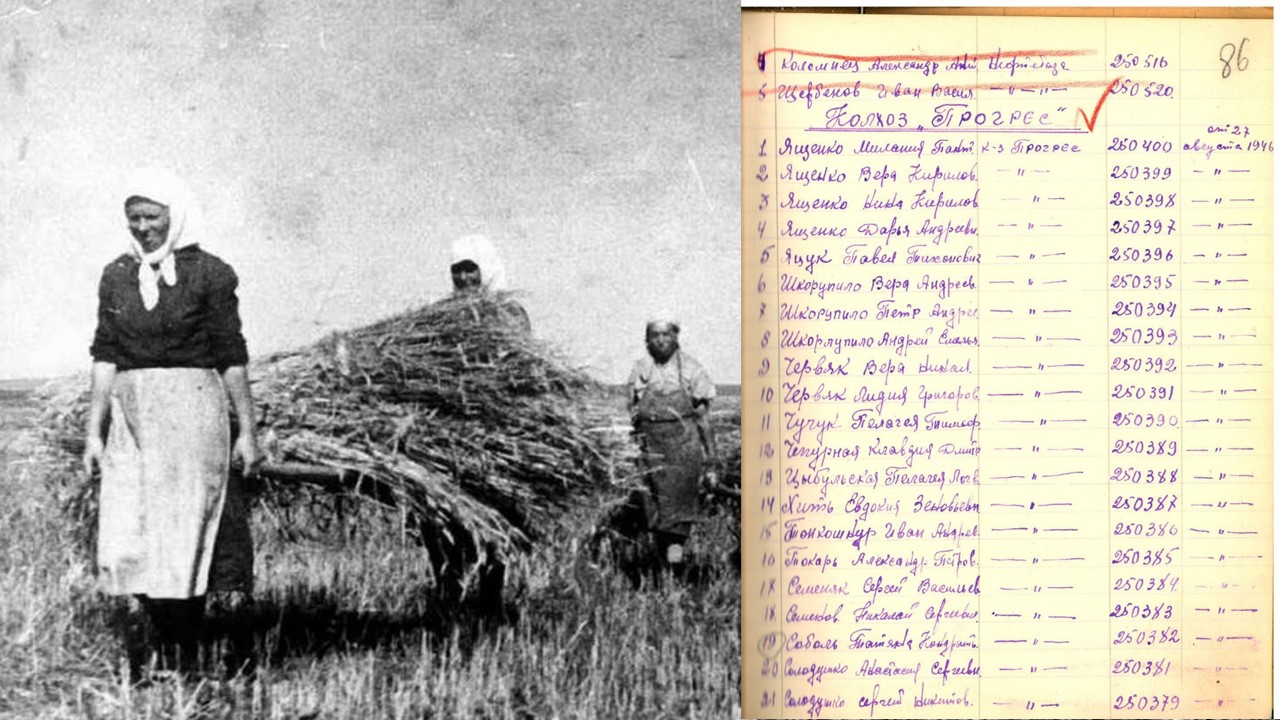 86
4 Коломиец Александр Ант Нефтебаза 250516
5 Щербенов Иван Васил. — „ — „ — 250520
Колхоз „Прогрес"
от 27
1 Ященко Милания Пант. к-з Прогрес 250400 августа 1946
2 Ященко Вера Кирилов. — „ — 250399 — „ —
3 Ященко Нина Кирилов — „ — 250398 — „ —
4 Ященко Дарья Андреевн. — „ — 250397 — „ —
5 Яцук Павел Тихонович — „ — 250396 — „ —
6 Шкорупило Вера Андреев. — „ — 250395 — „ —
7 Шкорупило Петр Андрее — „ — 250394 — „ —
8 Шкорлупило Андрей Емелья. — „ — 250393 — „ —
9 Червяк Вера Никол. — „ — 250392 — „ —
10 Червяк Лидия Григоров. — „ — 250391 — „ —
11 Чучук Пелагея Тимоф — „ — 250390 — „ —
12 Чепурная Клавдия Дмит — „ — 250389 — „ —
13 Цыбульская Пелагея — „ — 250388 — „ —
14 Хить Евдокия Зеновьевн — „ — 250387 — „ —
15 Тонкошкур Иван Андрев. — „ — 250386 — „ —
16 Токарь Александр Петров. — „ — 250385 — „ —
Семеняк Сергей Васильев — „ — 250384 — „ —
18 Семенов. Николай Сергеевич. — „ — 250383 — „ —
19 Соболь Татьяна Кондрать. — „ — 250382 — „ —
20 Солодушко Анастасия Сергеевн. — „ — 250381 — „ —
21 Солодушко Сергей Никитов. — „ — 250379 — „ —